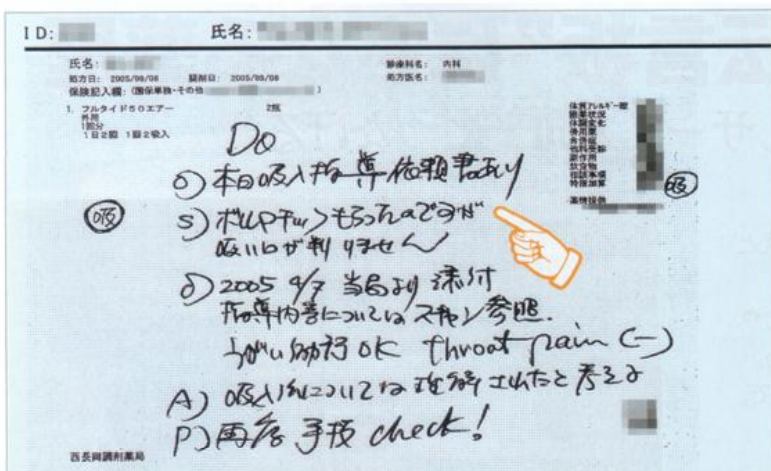 ID:
氏名:
氏名:
診療科名: 内科
処方日: 2005/09/08 調剤日: 2005/09/08
処方医名:
保険記入欄: (国保単独・その他 )
1. フルタイド50エアー 2瓶
外用
1回分
1日2回 1回2吸入
体質アレルギー歴
服薬状況
体調変化
併用薬
合併症
他科受診
副作用
飲食物
相談事項
特指加算
薬情提供
Do
O) 本日吸入指導依頼書あり
吸
吸
S) ボルPチックもらったのですが
吸い口が判りません
O) 2005 9/7 当局より添付
指導内容についてはスキャン参照.
うがい励行OK throat pain (-)
A) 吸入法については理解出来たと考える
P) 再度手技 check!
西長岡調剤薬局